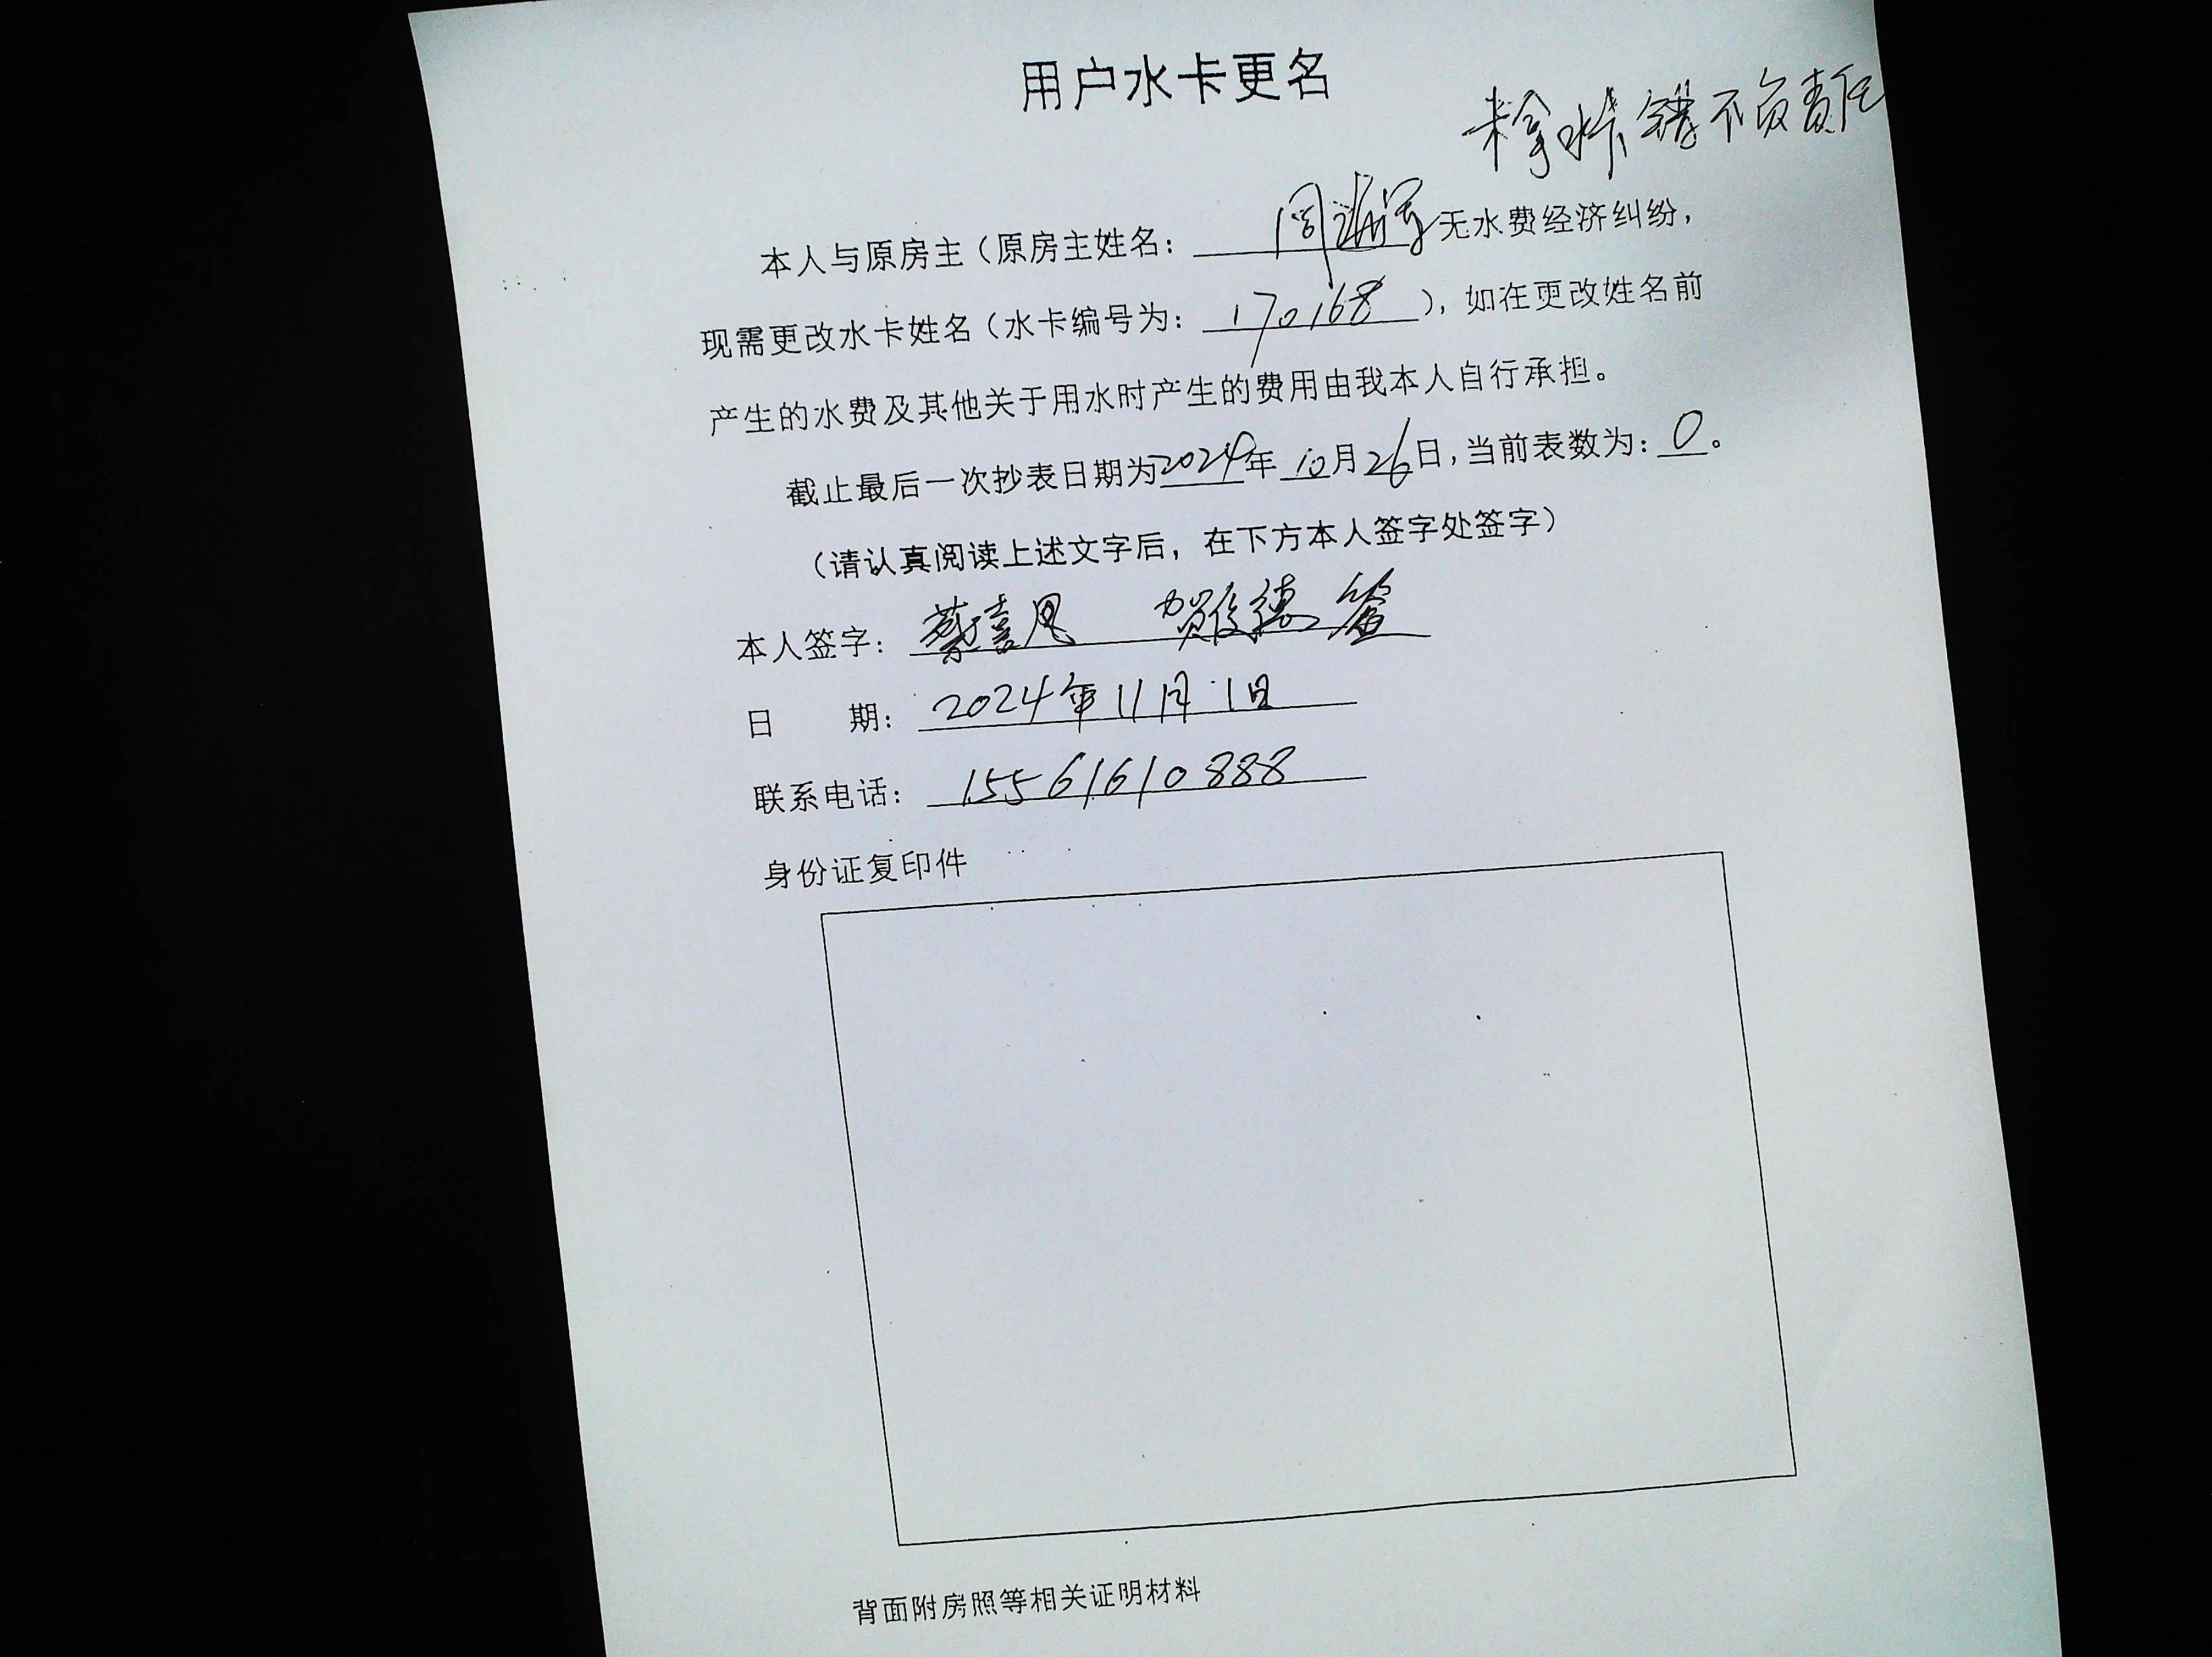 用户水卡更名
未拿水卡错不负责任
本人与原房主（原房主姓名：周 无水费经济纠纷，
现需更改水卡姓名（水卡编号为：170168），如在更改姓名前
产生的水费及其他关于用水时产生的费用由我本人自行承担。
截止最后一次抄表日期为2024年10月26日，当前表数为：0。
（请认真阅读上述文字后，在下方本人签字处签字）
本人签字：蔡喜恩 贺俊德签
日 期：2024年11月1日
联系电话：15561610888
身份证复印件
背面附房照等相关证明材料